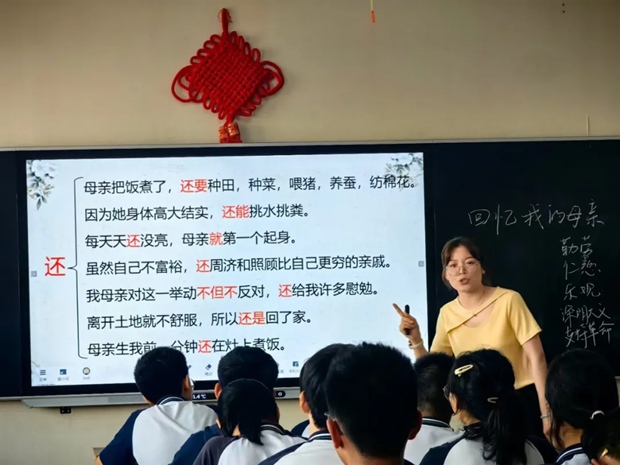 还
母亲把饭煮了，还要种田，种菜，喂猪，养蚕，纺棉花。
因为她身体高大结实，还能挑水挑粪。
每天天还没亮，母亲就第一个起身。
虽然自己不富裕，还周济和照顾比自己更穷的亲戚。
我母亲对这一举动不但不反对，还给我许多慰勉。
离开土地就不舒服，所以还是回了家。
母亲生我前一分钟还在灶上煮饭。
回忆我的母亲
勤劳
仁慈
乐观
深明大义
支持革命